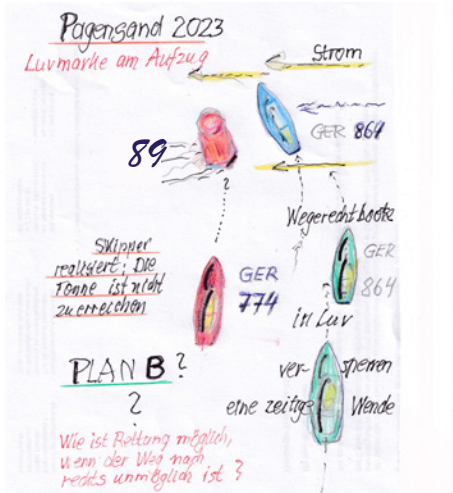 Pagensand 2023
Luvmarke am Aufzug
Strom
GER 864
89
?
Wegerechtboote
Skipper
realisiert: Die
Tonne ist nicht
zu erreichen
GER
774
GER
864
in Luv
PLAN B ?
ver- sperren
eine zeitge Wende
?
Wie ist Rettung möglich,
wenn der Weg nach
rechts unmöglich ist ?